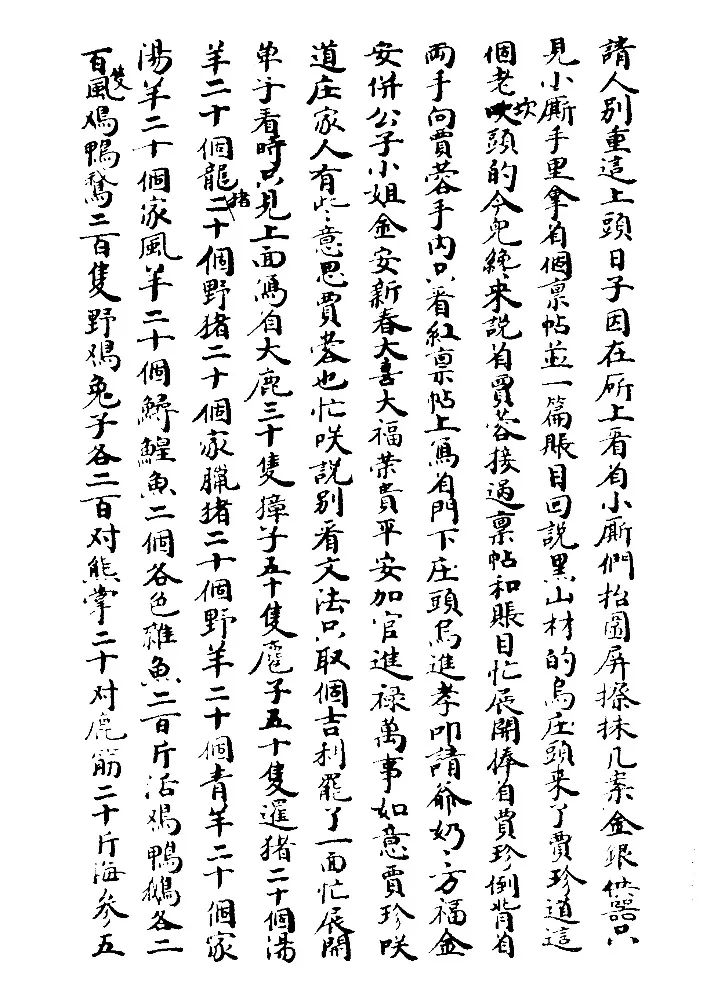 請人別重這上頭日子因在廝上看着小廝們抬圍屏擦抹几案金銀供器只
見小廝手里拿着個禀帖並一篇賬目回說黑山村的烏庄頭来了賈珍道這
個老砍頭的今兒纔来說着賈蓉接過禀帖和賬目忙展開捧着賈珍倒背着
両手向賈蓉手内只看紅禀帖上寫着門下庄頭烏進孝叩請爺奶〻万福金
安併公子小姐金安新春大喜大福荣貴平安加官進禄萬事如意賈珍咲
道庄家人有些意思賈蓉也忙咲說别看文法只取個吉利罷了一面忙展開
单子看時只見上面寫着大鹿三十隻獐子五十隻麅子五十隻暹猪二十個湯
羊二十個龍猪二十個野猪二十個家臘猪二十個野羊二十個青羊二十個家
湯羊二十個家風羊二十個鱘鰉魚二個各色雜魚二百斤活鳮鴨鵝各二
百隻風鳮鴨鵞二百隻野鳮兔子各二百对熊掌二十对鹿筋二十斤海参五